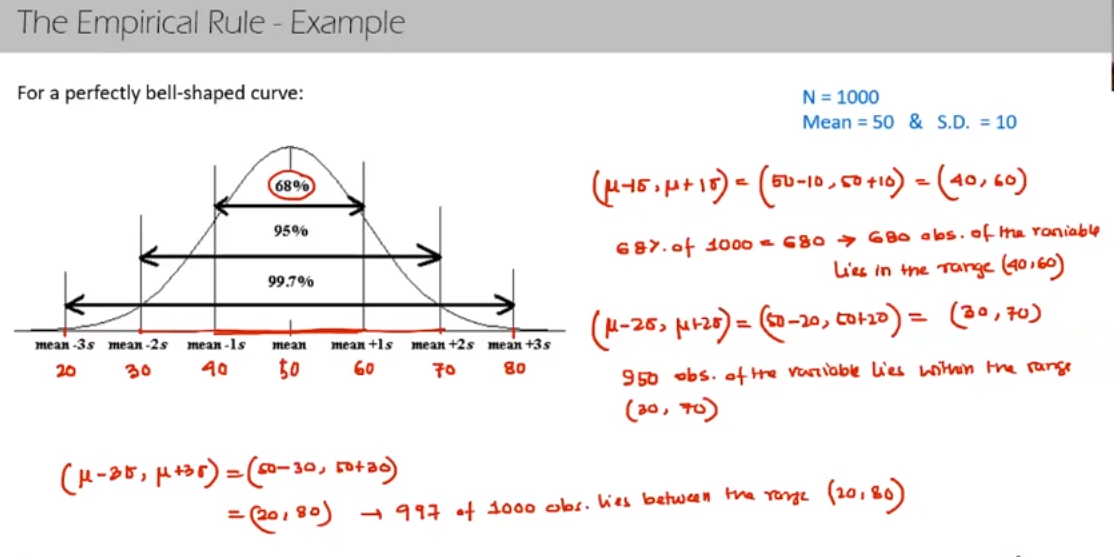 The Empirical Rule - Example
For a perfectly bell-shaped curve:
N = 1000
Mean = 50 & S.D. = 10
68%
95%
99.7%
mean -3s mean -2s mean -1s mean mean +1s mean +2s mean +3s
20 30 40 50 60 70 80
(μ-1σ, μ+1σ) = (50-10, 50+10) = (40, 60)
68% of 1000 = 680 → 680 obs. of the variable
lies in the range (40, 60)
(μ-2σ, μ+2σ) = (50-20, 50+20) = (30, 70)
950 obs. of the variable lies within the range
(30, 70)
(μ-3σ, μ+3σ) = (50-30, 50+30)
= (20, 80) → 997 of 1000 obs. lies between the range (20, 80)